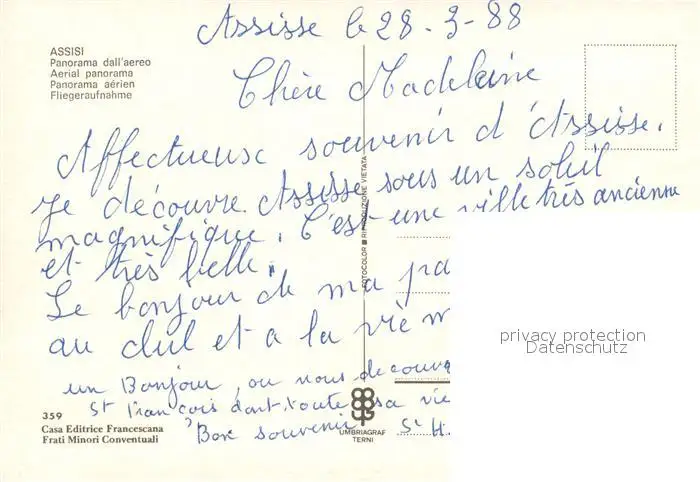 Assisse le 28-3-88
ASSISI
Panorama dall'aereo
Aerial panorama
Panorama aérien
Fliegeraufnahme
Chère Madeleine
Affectueux souvenir d'Assisse.
Je découvre Assisse sous un soleil
magnifique. C'est une ville très ancienne
et très belle.
Le bonjour de ma pa
au club et a la viè m
un Bonjour, ou nous découvr
St François dont toute sa vie
Bon souvenir St H.
FOTOCOLOR ■ RIPRODUZIONE VIETATA
359
Casa Editrice Francescana
Frati Minori Conventuali
UMBRIAGRAF
TERNI
privacy protection
Datenschutz